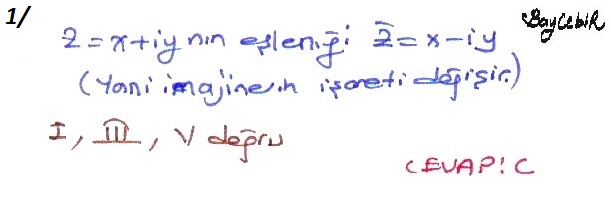 1/
BayCebiR
z = x+iy nın eşleniği z̄ = x-iy
(Yani imajinerin işareti değişir.)
I, III, V doğru
CEVAP: C